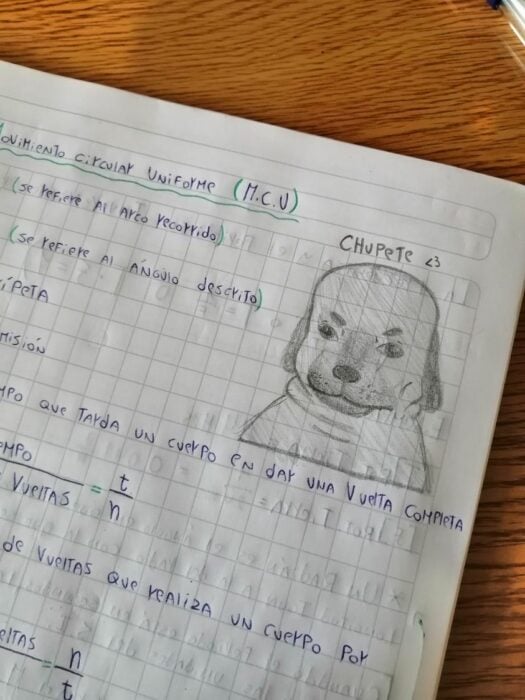 MOVIMIENTO CIRCULAR UNIFORME (M.C.U)
(SE REFIERE AL ARCO RECORRIDO)
CHUPETE <3
(SE REFIERE AL ÁNGULO DESCRITO)
ÍPETA
MISIÓN
MPO QUE TARDA UN CUERPO EN DAR UNA VUELTA COMPLETA
EMPO
VUELTAS = t
n
DE VUELTAS QUE REALIZA UN CUERPO POR
UELTAS = n
t